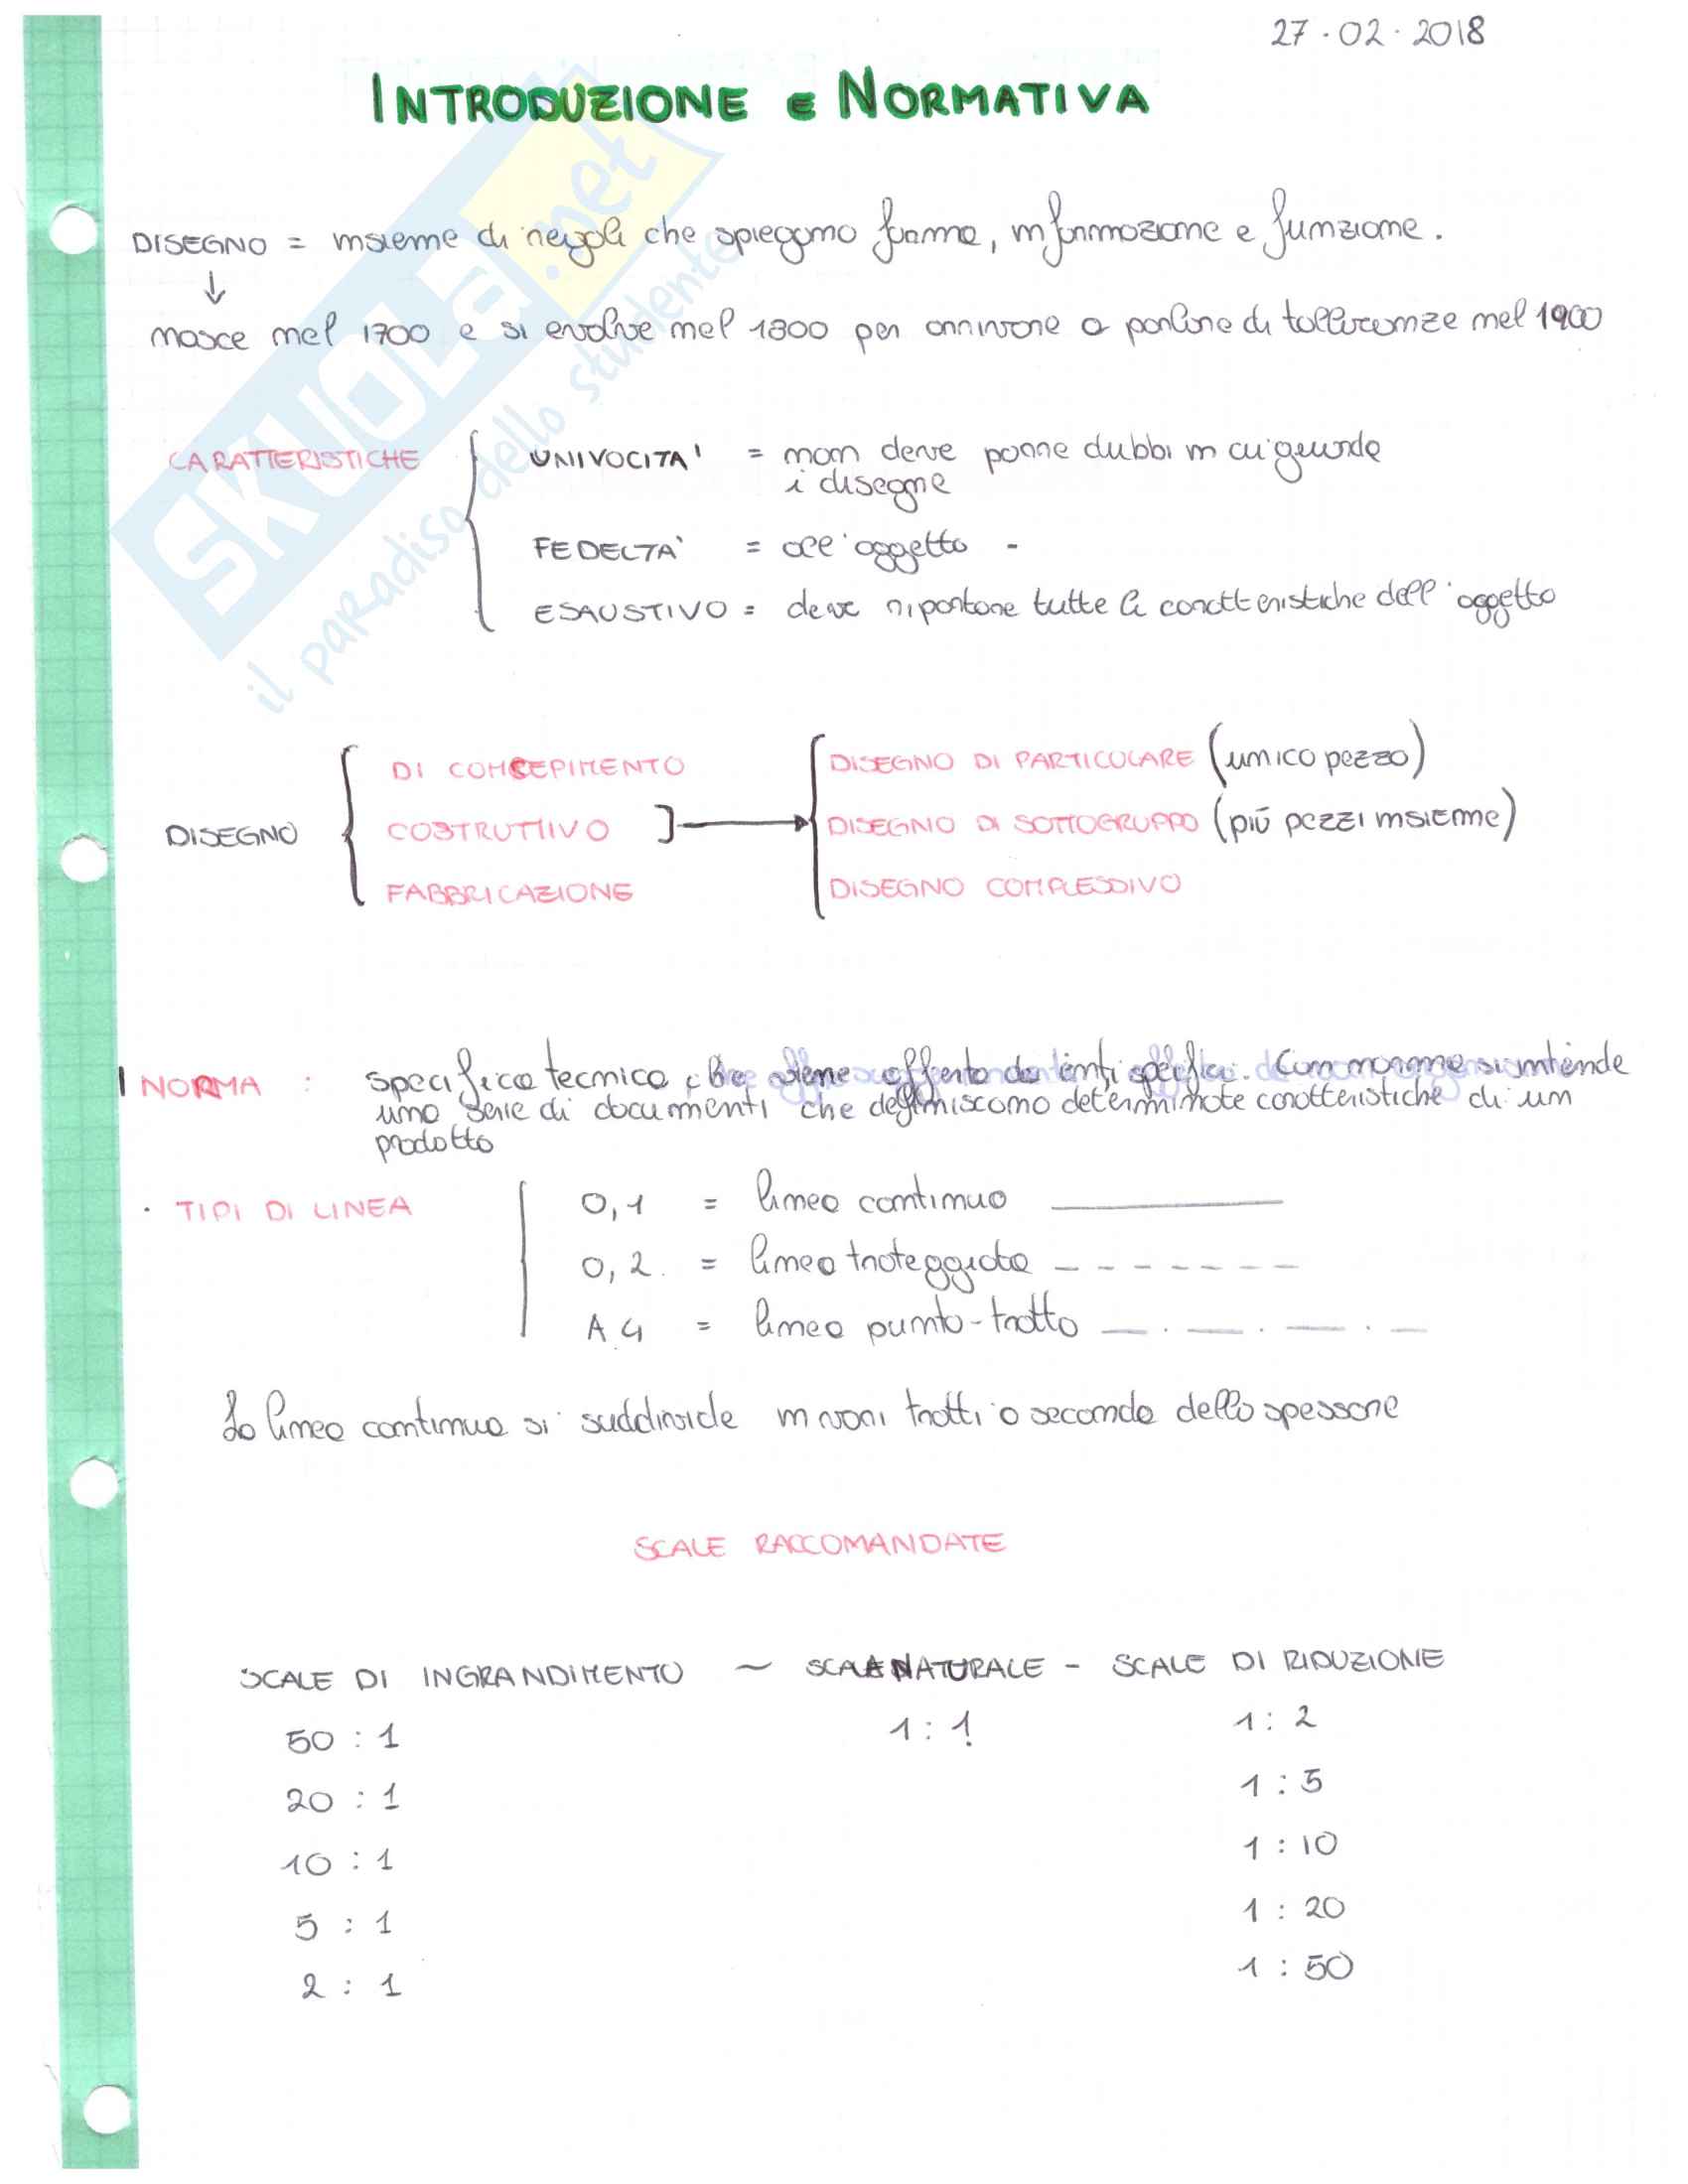 27 · 02 · 2018
INTRODUZIONE e NORMATIVA
DISEGNO = insieme di regole che spiegano forma, informazione e funzione.
↓
nasce nel 1700 e si evolve nel 1800 per arrivare a parlare di tolleranze nel 1900
CARATTERISTICHE
UNIVOCITA' = non deve porre dubbi in cui guarda
i disegne
FEDELTA' = all'oggetto -
ESAUSTIVO = deve riportare tutte le caratteristiche dell'oggetto
DISEGNO
DI CONCEPIMENTO
COSTRUTTIVO
FABBRICAZIONE
DISEGNO DI PARTICOLARE (unico pezzo)
DISEGNO DI SOTTOGRUPPO (più pezzi insieme)
DISEGNO COMPLESSIVO
NORMA : specifica tecnica che viene offerta da enti specifici. Con norme si intende
una serie di documenti che definiscono determinate caratteristiche di un
prodotto
· TIPI DI LINEA
0,1 = linea continua
0,2. = linea tratteggiata
A 4 = linea punto-tratto
La linea continua si suddivide in vari tratti a seconda dello spessore
SCALE RACCOMANDATE
SCALE DI INGRANDIMENTO ~ SCALA NATURALE - SCALE DI RIDUZIONE
50 : 1 1 : 1 1 : 2
20 : 1 1 : 5
10 : 1 1 : 10
5 : 1 1 : 20
2 : 1 1 : 50
SKUOLA.net
il paradiso dello studente